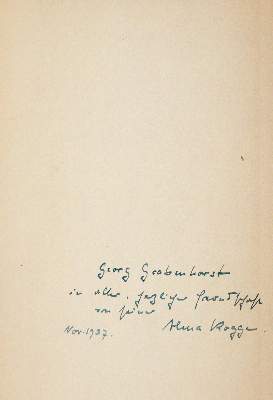 Georg Grabenhorst
in alter, herzlicher Freundschaft
von seiner
Nov. 1937. Alma Rogge.